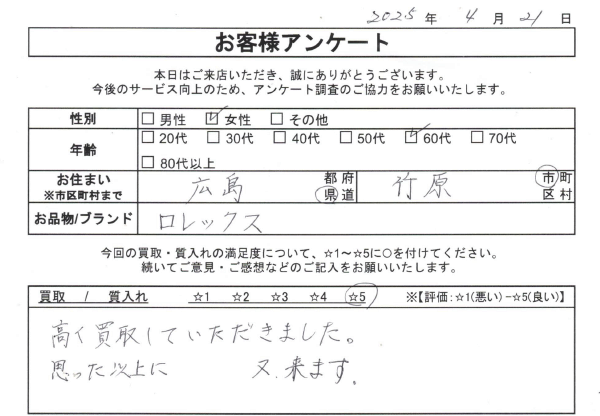 2025 年 4 月 21 日
お客様アンケート
本日はご来店いただき、誠にありがとうございます。
今後のサービス向上のため、アンケート調査のご協力をお願いいたします。
性別 □ 男性 ☑ 女性 □ その他
年齢 □ 20代 □ 30代 □ 40代 □ 50代 ☑ 60代 □ 70代
□ 80代以上
お住まい ※市区町村まで 広島 都 府 県 道 竹原 市 町 区 村
お品物/ブランド ロレックス
今回の買取・質入れの満足度について、☆1～☆5に○を付けてください。
続いてご意見・ご感想などのご記入をお願いいたします。
買取 / 質入れ ☆1 ☆2 ☆3 ☆4 ☆5 ※【評価:☆1(悪い)−☆5(良い)】
高く買取していただきました。
思った以上に 又、来ます。